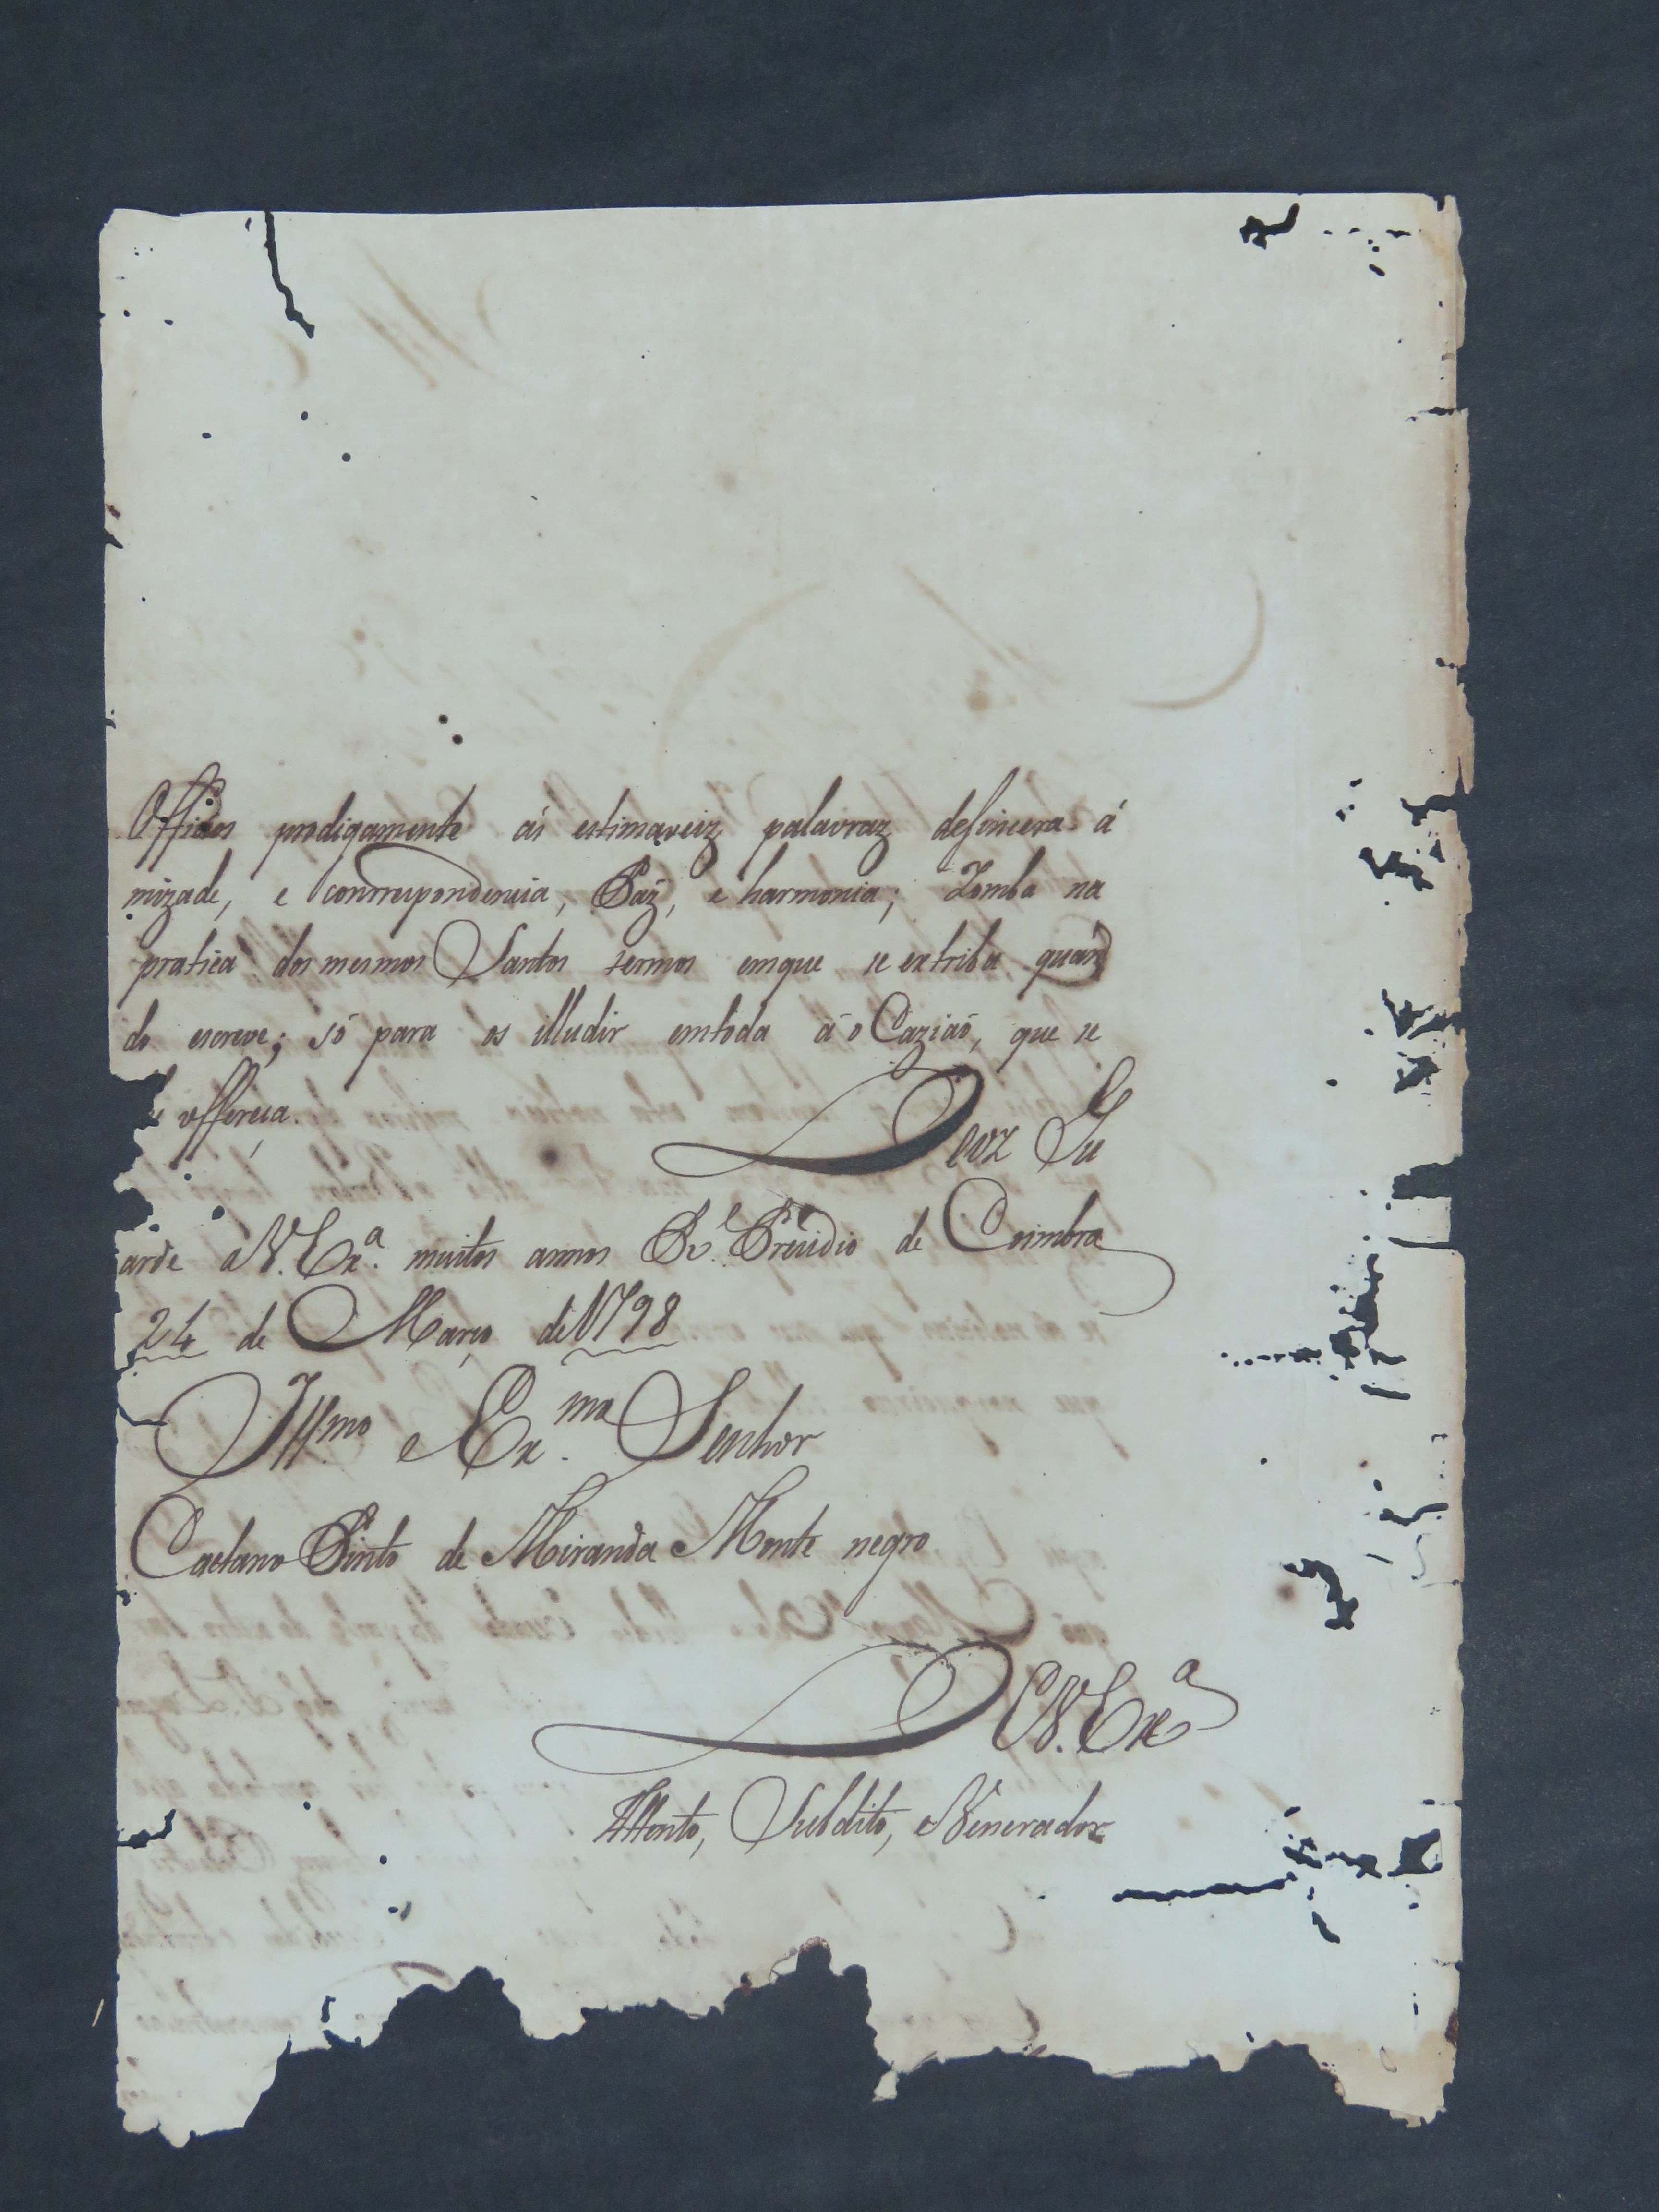 Officios prodigamente ás estimaveiz palavraz desincera á
mizade, e conrrespondencia, Páz, e harmonia; Zomba na
pratica dos mesmos Santos termos emque se extriba quan
do escreve; só para os illudir emtoda á o Caziaõ, que se
offereça.
Deoz Gu
arde a V. Ex.ª muitos annos R.l Prezidio de Coimbra
24 de Março de 1798
Ill.mo e Ex.mo Senhor
Caetano Pinto de Miranda Monte negro
D V. Ex.ª
Attento, Subdito, e Venerador